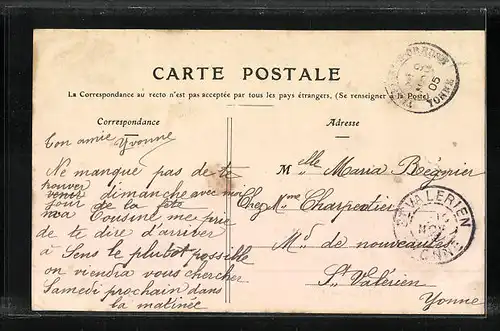 CARTE POSTALE
La Correspondance au recto n'est pas acceptée par tous les pays étrangers, (Se renseigner à la Poste)
Correspondance
Ton amie Yvonne
Ne manque pas de te
trouver
venir dimanche avec moi
jour de la fête
noa Cousinel me prie
de te dire d'arriver
à Sens le plutot possible
on viendra vous chercher
Samedi prochain dans
la matinée
Adresse
Melle Maria Régnier
Chez Mme Charpentier
Mde de nouveautés
St Valérien
Yonne
05
YONNE
ST VALERIEN
NOV
YONNE